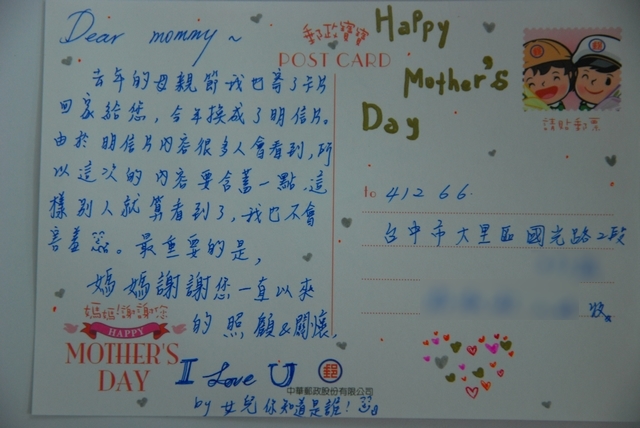 Dear mommy~
去年的母親節我也寄了卡片
回家給您，今年換成了明信片。
由於明信片內容很多人會看到，所
以這次的內容要含蓄一點，這
樣別人就算看到了，我也不會
害羞。最重要的是，
媽媽謝謝您一直以來
的照顧&關懷，
I Love U
by 女兒你知道是誰！
媽媽！謝謝您
HAPPY
MOTHER'S
DAY
郵政寶寶
POST CARD
Happy
Mother's
Day
請貼郵票
to 412 66.
台中市大里區國光路2段
收
郵
中華郵政股份有限公司